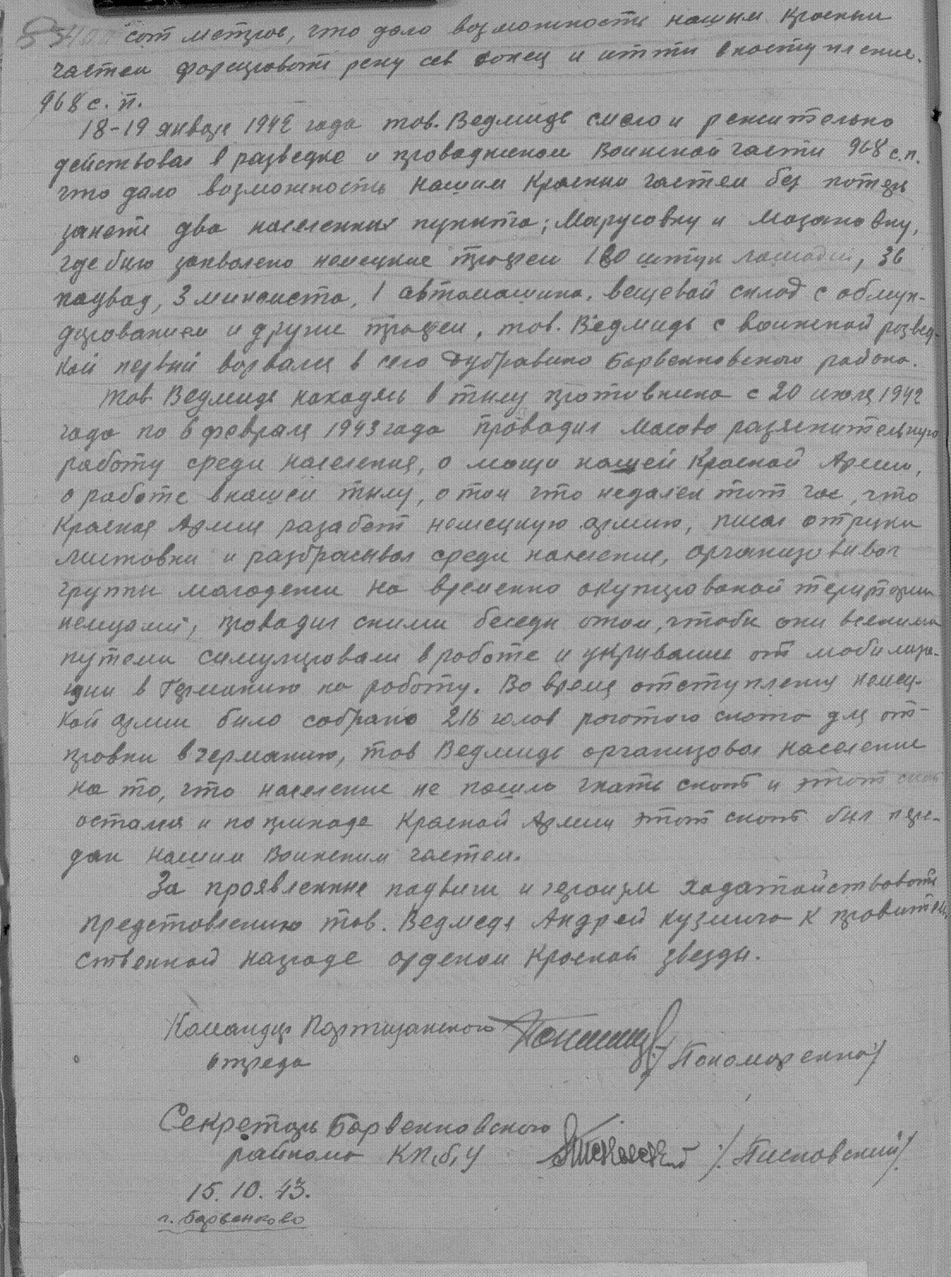 сот метров, что дало возможность нашим Красным
частям форсировать реку сев донец и итти в наступление.
968 с.п.
18-19 января 1942 года тов. Ведмидь смело и решительно
действовал в разведке и проводником Воинской части 968 с.п.
что дало возможность нашим Красним частям без потерь
занять два населенных пункта; Марусовку и Мазановку,
где було захвалено немецкие трофеи 180 штук лошадей, 36
падвад, 3 минаиста, 1 автомашина, вещевой склад с обмун-
дированием и другие трофеи, тов. Ведмидь с воинской развед-
кой первий ворвался в село Дубравино Барвенковского района.
Тов. Ведмидь находясь в тилу противника с 20 июля 1942
года по 6 февраля 1943 года проводил масово разяснительную
работу среди населения, о мощи нашей Красной Армии,
о работе в нашем тылу, о том что недалек тот час, что
Красная Армия разабет немецкую армию, писал от руки
листовки и разбрасывал среди населения, организовивал
группы молодежи на временно окупированой територии
немцами, проводил с ними беседи о том, чтобы они всякими
путями симулировали в работе и укривались от мобилиза-
ции в Германию на работу. Во время отступления немец-
кой армии било собрано 216 голов рогатого скота для от-
правки в германию, тов Ведмидь организовал население
на то, что население не пошло гнать скот и этот скот
остался и по приходе Красной Армии этот скот бил пере-
дан нашим Воинским частям.
За проявленные падвиги и героизм ходатайствовать
представлению тов. Ведмедя Андрей Кузмича к правитель-
ственной награде орденом Красной звезды.
Командир Партизанского
отряда /Пономаренко/
Секретарь Барвенковского
райкома КП/б/У /Писковский/
15.10.43.
г. Барвенково